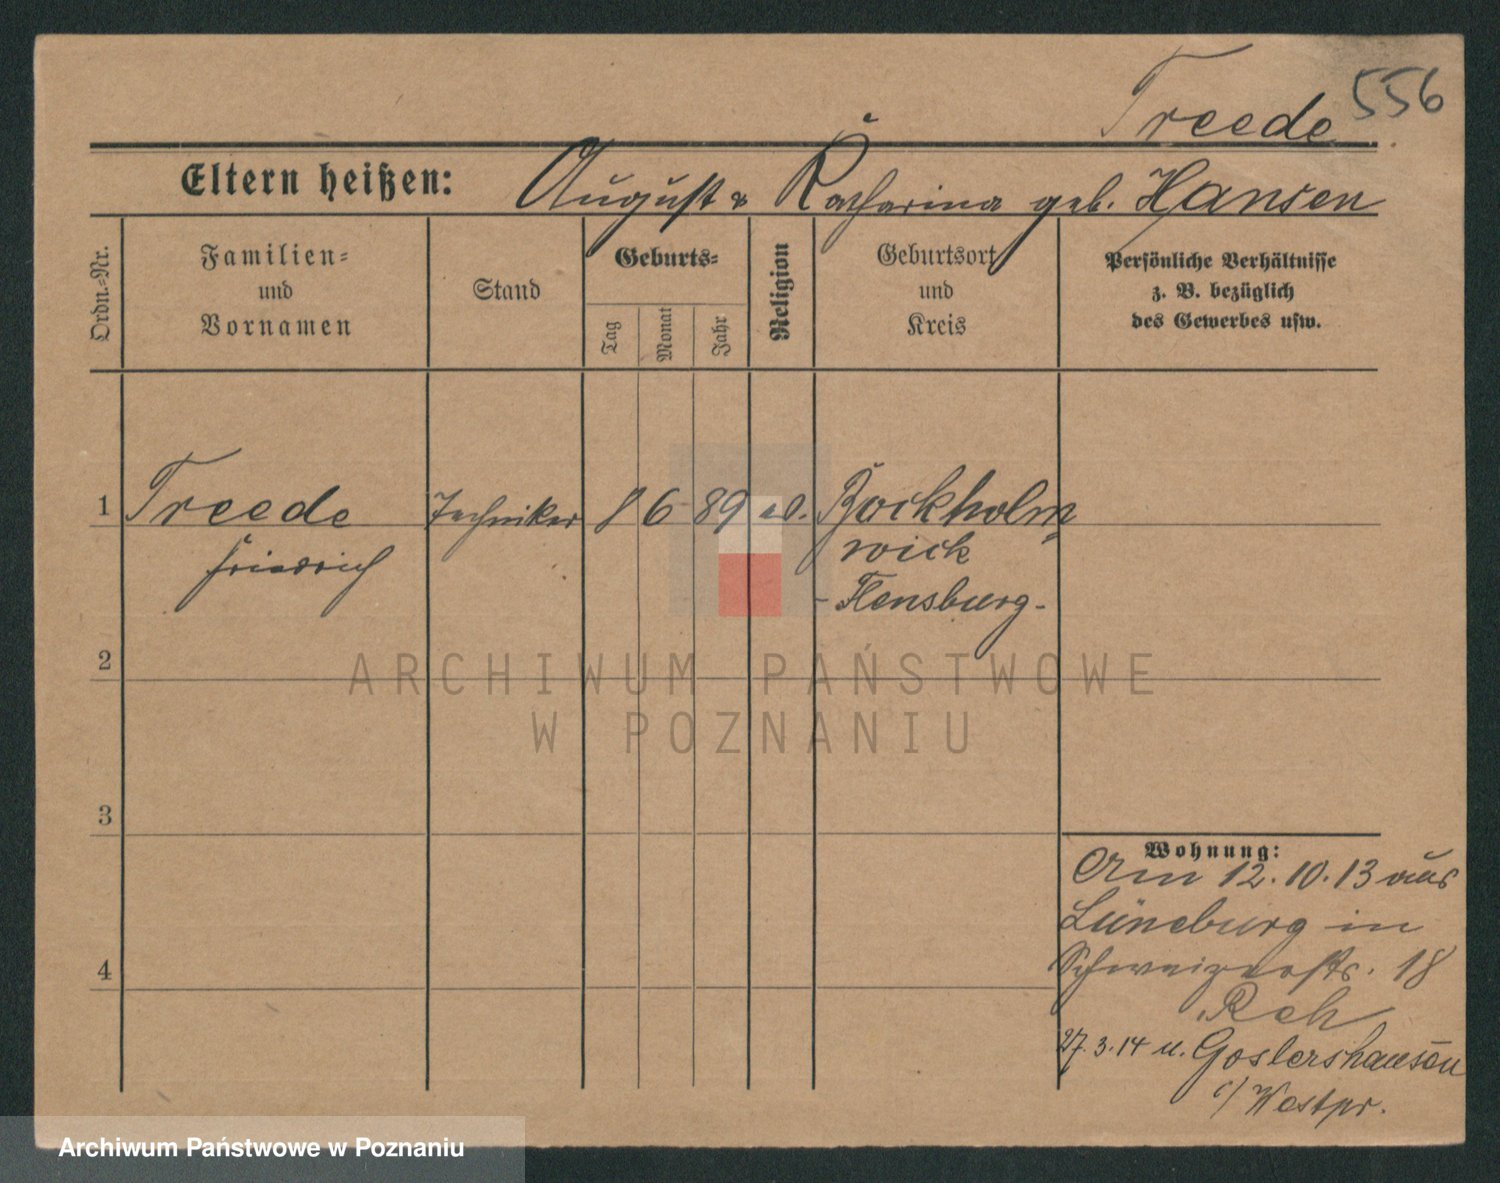 Treede 556
Eltern heißen: August u Katharina geb. Hansen
Ordn.-Nr.
Familien-
und
Vornamen
Stand
Geburts-
Tag
Monat
Jahr
Religion
Geburtsort
und
Kreis
Persönliche Verhältnisse
z. B. bezüglich
des Gewerbes usw.
1 Treede Techniker 8 6 89 ev. Bockholm
Friedrich wick
- Flensburg -
2
ARCHIWUM PAŃSTWOWE
W POZNANIU
3
4
Wohnung:
Am 12.10.13 aus
Lüneburg in
Schweizerstr. 18
Reh
27.3.14 n. Goslershausen
i/ Westpr.
Archiwum Państwowe w Poznaniu